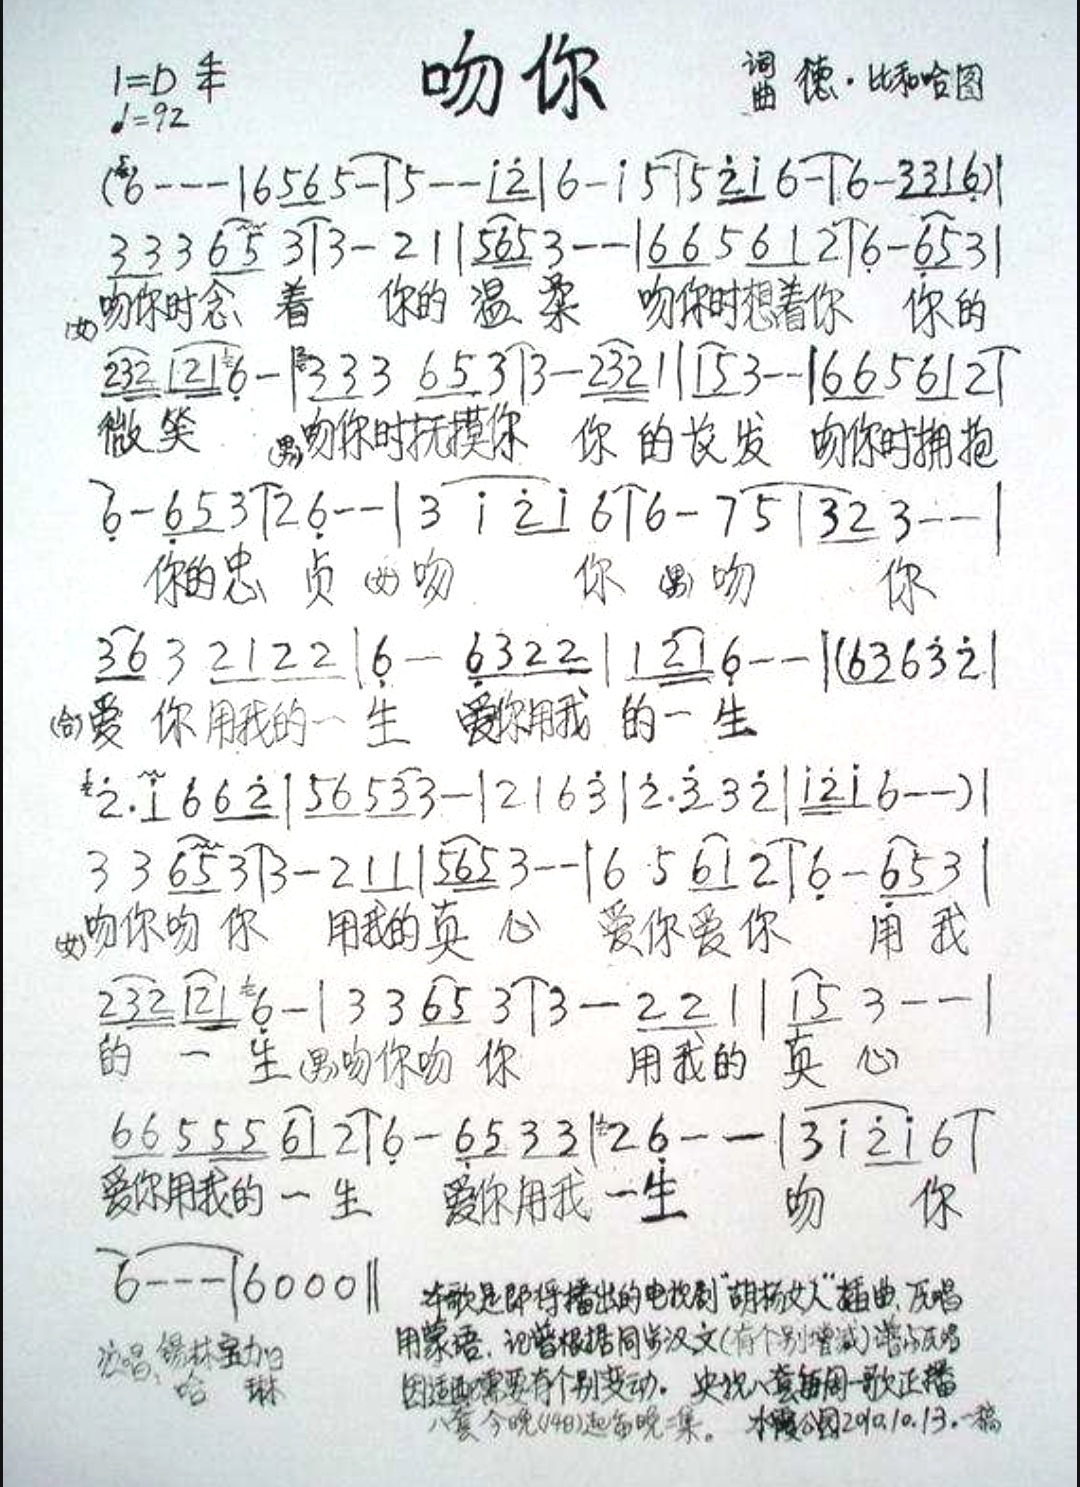 吻你
1=D 4/4
♩=92
词曲 德·比和哈图
(6---|6565-|5--i2|6-i5|52i6-|6-3316)|
333653|3-21|5653--|665612|6-653|
(女)吻你时念着 你的温柔 吻你时想着你 你的
2321216-|333653|3-2321|153--|665612|
微笑 (男)吻你时抚摸你 你的长发 吻你时拥抱
6-653|26--|3i2i6|6-75|323--|
你的忠贞 (女)吻 你 (男)吻 你
3632122|6-6322|1216--|(63632|
(合)爱你用我的一生 爱你用我的一生
2·i662|56533-|2163|2·332|i2i6--)|
33653|3-211|5653--|65612|6-653|
(女)吻你吻你 用我的真心 爱你爱你 用我
2321216-|33653|3-221|153--|
的一生 (男)吻你吻你 用我的真心
66555612|6-6533|26---|3i2i6|
爱你用我的一生 爱你用我一生 吻 你
6---|6000‖
本歌是即将播出的电视剧"胡杨女人"插曲、原唱
用蒙语、记谱根据同步汉文(有个别增减)谱与原唱
因适配需要有个别变动。央视八套每周一歌正播
八套今晚(14日)起每晚二集。 冰霞公园2010.10.13.一稿
演唱、锡林宝力日
哈琳